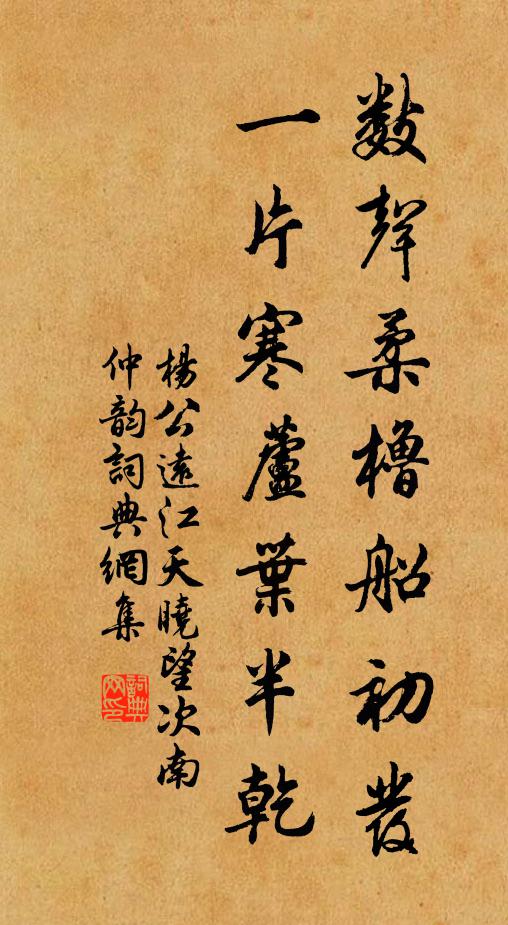 數聲柔櫓船初發
一片寒蘆葉半乾
楊公遠江天曉望次南
仲韵詞典網集
詞典網印